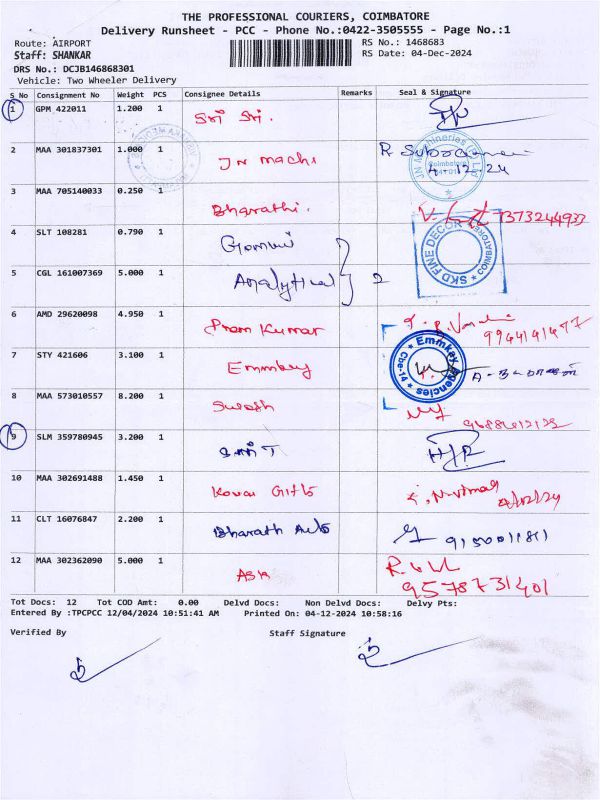 THE PROFESSIONAL COURIERS, COIMBATORE
Delivery Runsheet - PCC - Phone No.:0422-3505555 - Page No.:1
Route: AIRPORT RS No.: 1468683
Staff: SHANKAR RS Date: 04-Dec-2024
DRS No.: DCJB146868301
Vehicle: Two Wheeler Delivery
S No Consignment No Weight PCS Consignee Details Remarks Seal & Signature
1 GPM 422011 1.200 1 Sri Sri.
2 MAA 301837301 1.000 1 JN machi
4.12.24
JN Machineries (P) Ltd
Coimbatore
3 MAA 705140033 0.250 1 Bharathi. 7373244933
4 SLT 108281 0.790 1
SKD FINE DECOR
COIMBATORE
5 CGL 161007369 5.000 1 Analytical 2
6 AMD 29620098 4.950 1 Prem Kumar
9944141477
7 STY 421606 3.100 1 Emmkey
Emmkey Agencies
Cbe-14
8 MAA 573010557 8.200 1
9 SLM 359780945 3.200 1
10 MAA 302691488 1.450 1 Kovai Gifts
11 CLT 16076847 2.200 1 Bharath Auto
12 MAA 302362090 5.000 1
9578731401
Tot Docs: 12 Tot COD Amt: 0.00 Delvd Docs: Non Delvd Docs: Delvy Pts:
Entered By :TPCPCC 12/04/2024 10:51:41 AM Printed On: 04-12-2024 10:58:16
Verified By Staff Signature